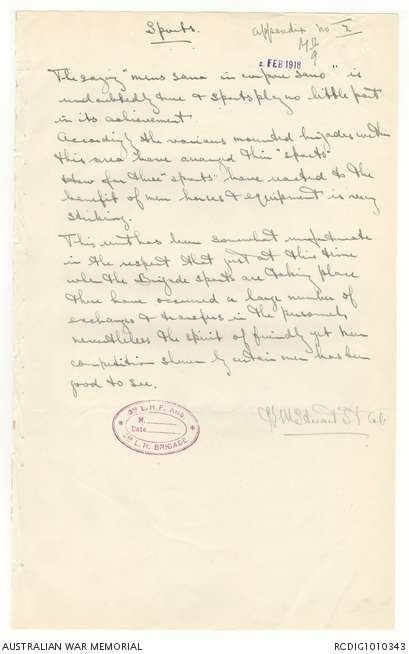 Sports.
Appendix No 2
2 FEB 1918
The saying "mens sana in corpore sano" is
undoubtedly true & sports play no little part
in its achievement
Accordingly the various mounted brigades within
this area have arranged their "sports"
How far these "sports" have reacted to the
benefit of men horses & equipment is very
striking.
This unit has been somewhat unfortunate
in the respect that just at this time
when the Brigade sports are taking place
there have occurred a large number of
exchanges & transfers in the personnel,
nevertheless the spirit of friendly yet keen
competition shewn by certain men has been
good to see.
3rd L.H.F. Amb.
No.
Date
L.H. BRIGADE
AUSTRALIAN WAR MEMORIAL
RCDIG1010343